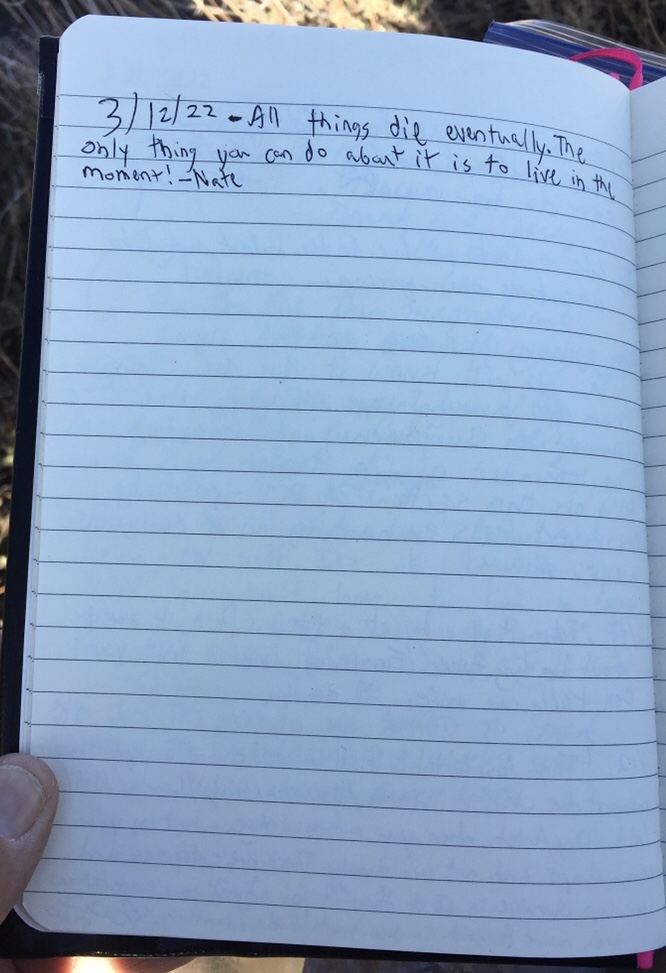 3/12/22 - All things die eventually. The
only thing you can do about it is to live in the
moment! - Nate